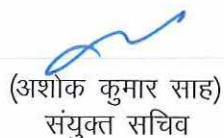 (अशोक कुमार साह)
संयुक्त सचिव